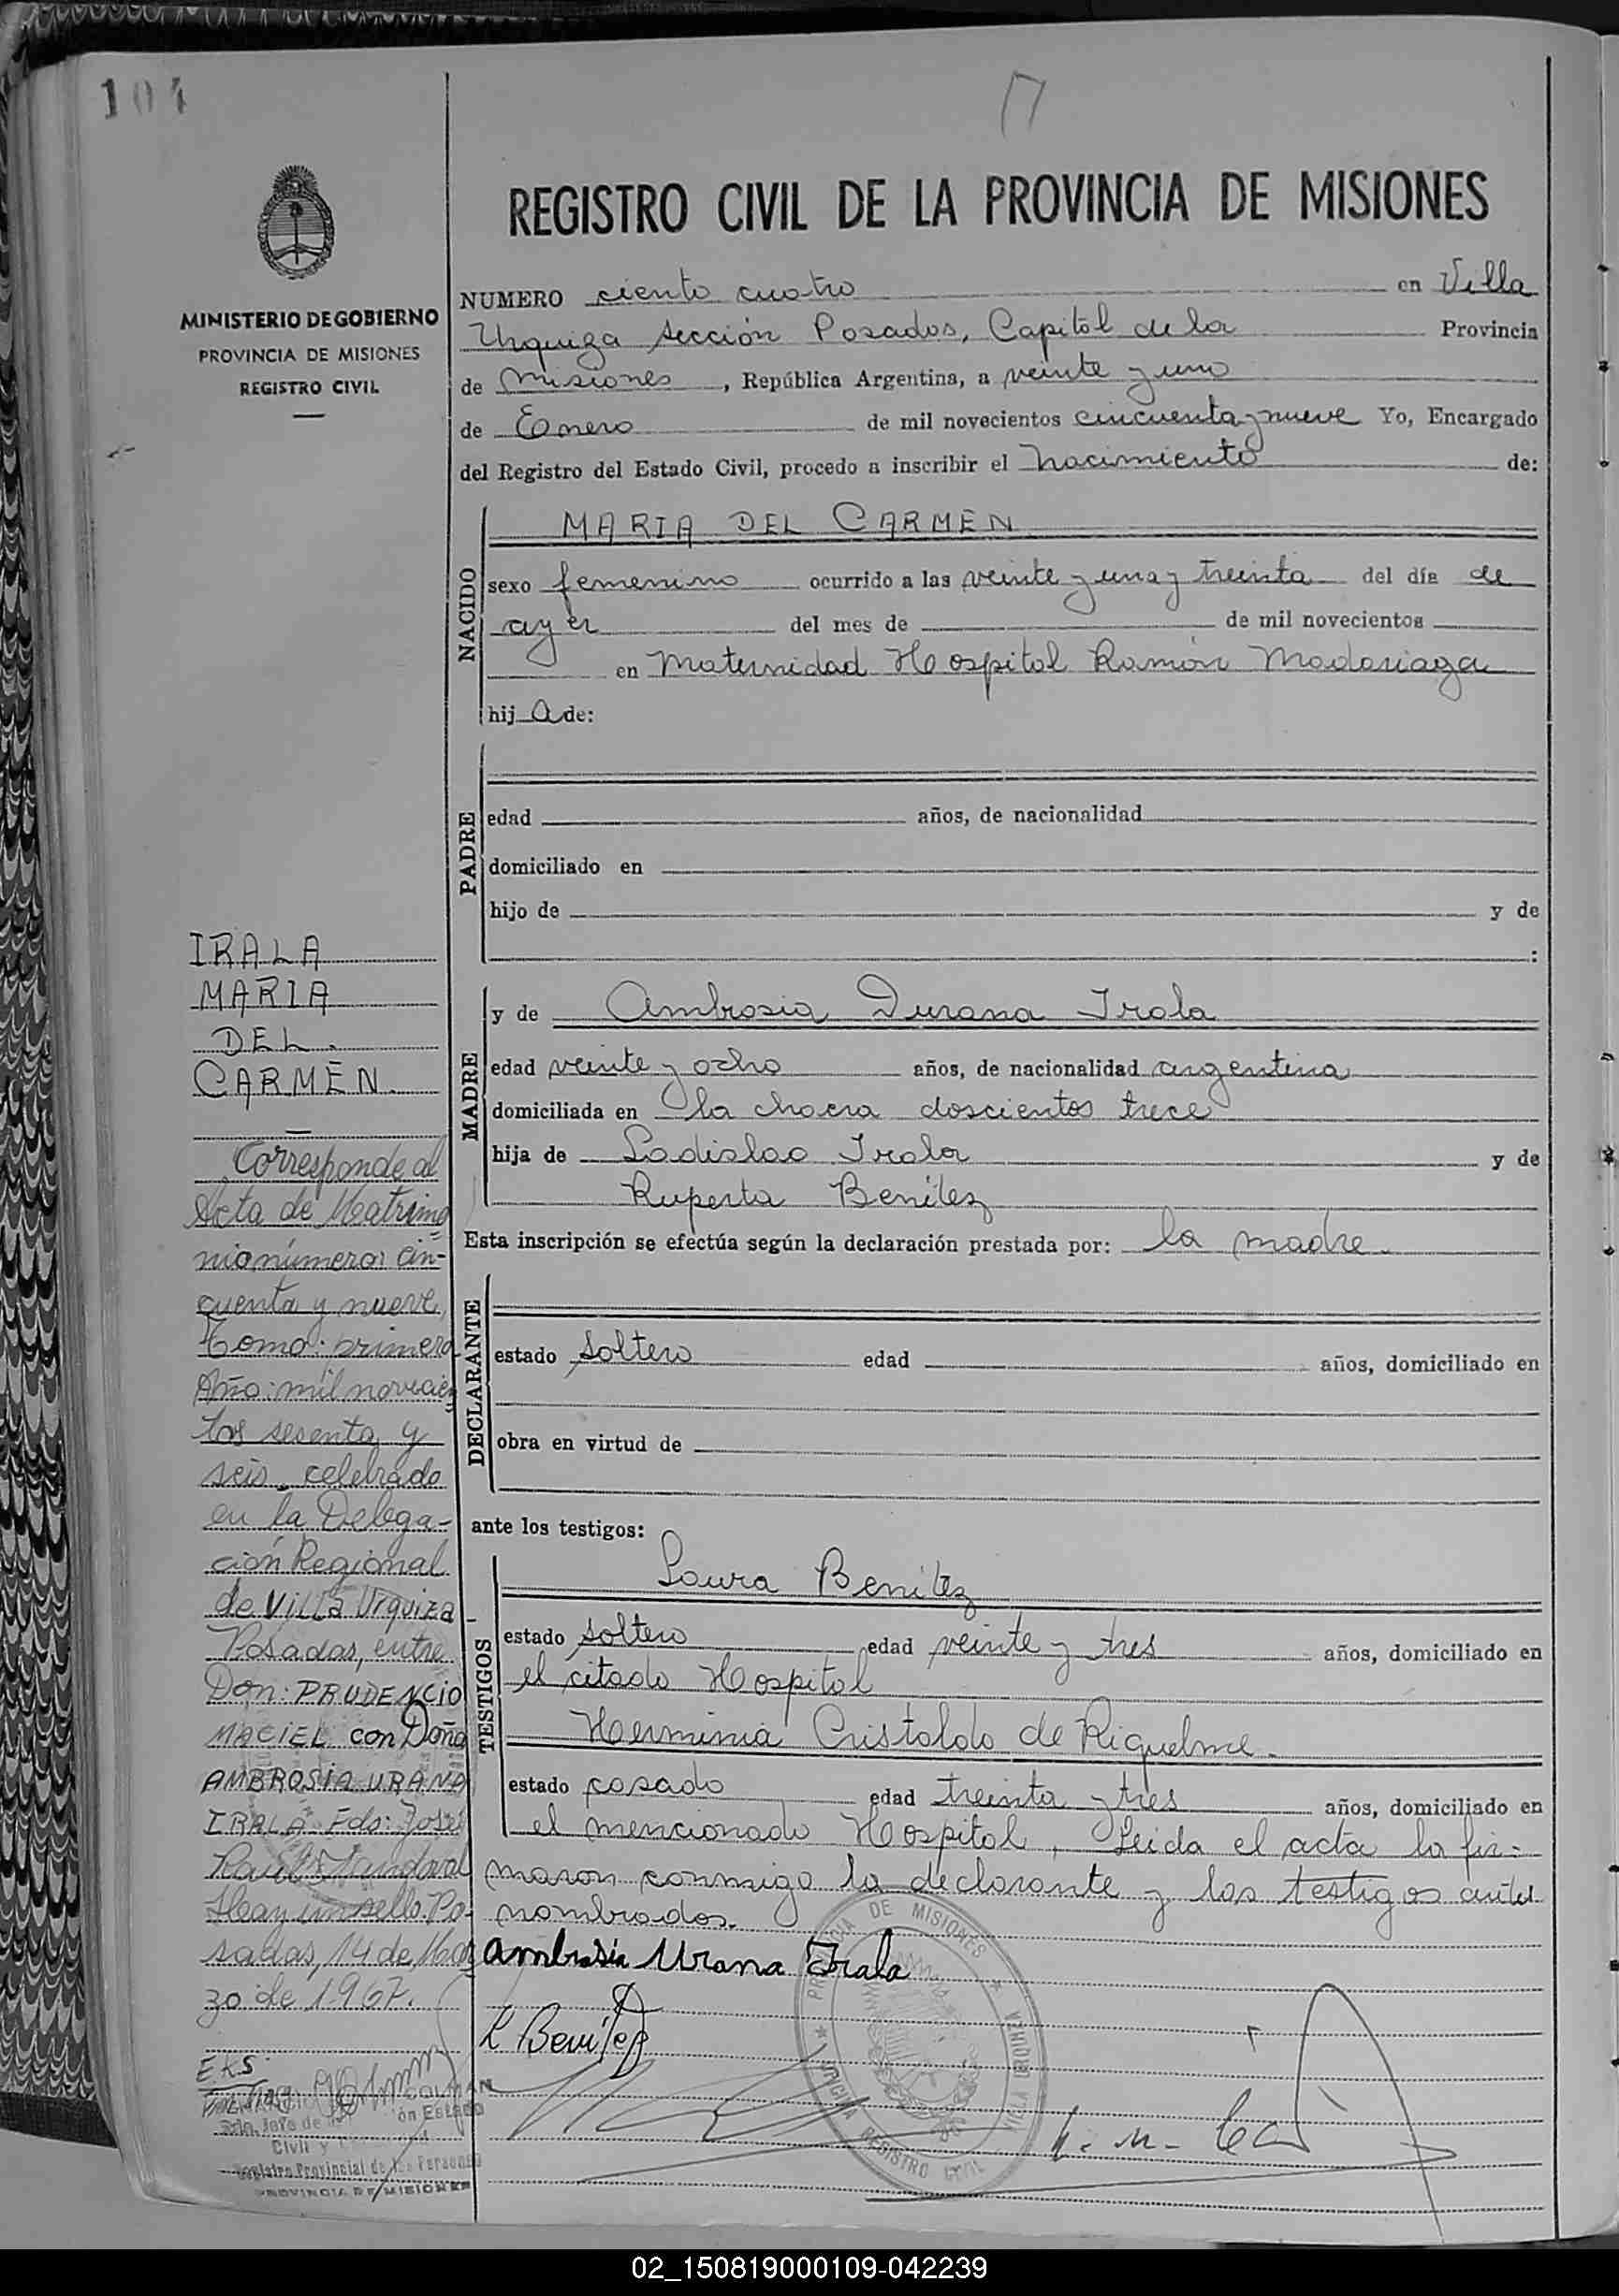 104
REGISTRO CIVIL DE LA PROVINCIA DE MISIONES
MINISTERIO DE GOBIERNO
PROVINCIA DE MISIONES
REGISTRO CIVIL
NUMERO ciento cuatro en Villa
Urquiza sección Posadas, Capital de la Provincia
de Misiones, República Argentina, a veinte y uno
de Enero de mil novecientos cincuenta y nueve Yo, Encargado
del Registro del Estado Civil, procedo a inscribir el nacimiento de:
NACIDO
MARIA DEL CARMEN
sexo femenino ocurrido a las veinte y una y treinta del día de
ayer del mes de de mil novecientos
en Maternidad Hospital Ramón Madariaga
hij a de:
PADRE
edad años, de nacionalidad
domiciliado en
hijo de y de
:
MADRE
y de Ambrosia Durana Irala
edad veinte y ocho años, de nacionalidad argentina
domiciliada en la chacra doscientos trece
hija de Ladislao Irala y de
Ruperta Benítez
Esta inscripción se efectúa según la declaración prestada por: la madre.
DECLARANTE
estado soltero edad años, domiciliado en
obra en virtud de
ante los testigos:
TESTIGOS
Laura Benitez
estado soltero edad veinte y tres años, domiciliado en
el citado Hospital
Herminia Cristaldo de Riquelme.
estado casado edad treinta y tres años, domiciliado en
el mencionado Hospital, Leida el acta la fir-
maron conmigo la declarante y los testigos antes
nombrados.
Ambrosia Urana Irala
L Benitez
IRALA
MARIA
DEL
CARMEN.
Corresponde al
Acta de Matrimo
nio número: cin-
cuenta y nueve,
Tomo: primero
Año: mil novecien
tos sesenta y
seis, celebrado
en la Delega-
ción Regional
de Villa Urquiza-
Posadas, entre
Don: PRUDENCIO
MACIEL con Doña
AMBROSIA URANA
IRALA Fdo: José
Raul Sandoval
Hay un sello. Po-
sadas, 14 de Mar
zo de 1967.
E.K.S.
Civil y
Registro Provincial de las Personas
PROVINCIA DE MISIONES
PROVINCIA DE MISIONES
REGISTRO CIVIL
02_150819000109-042239